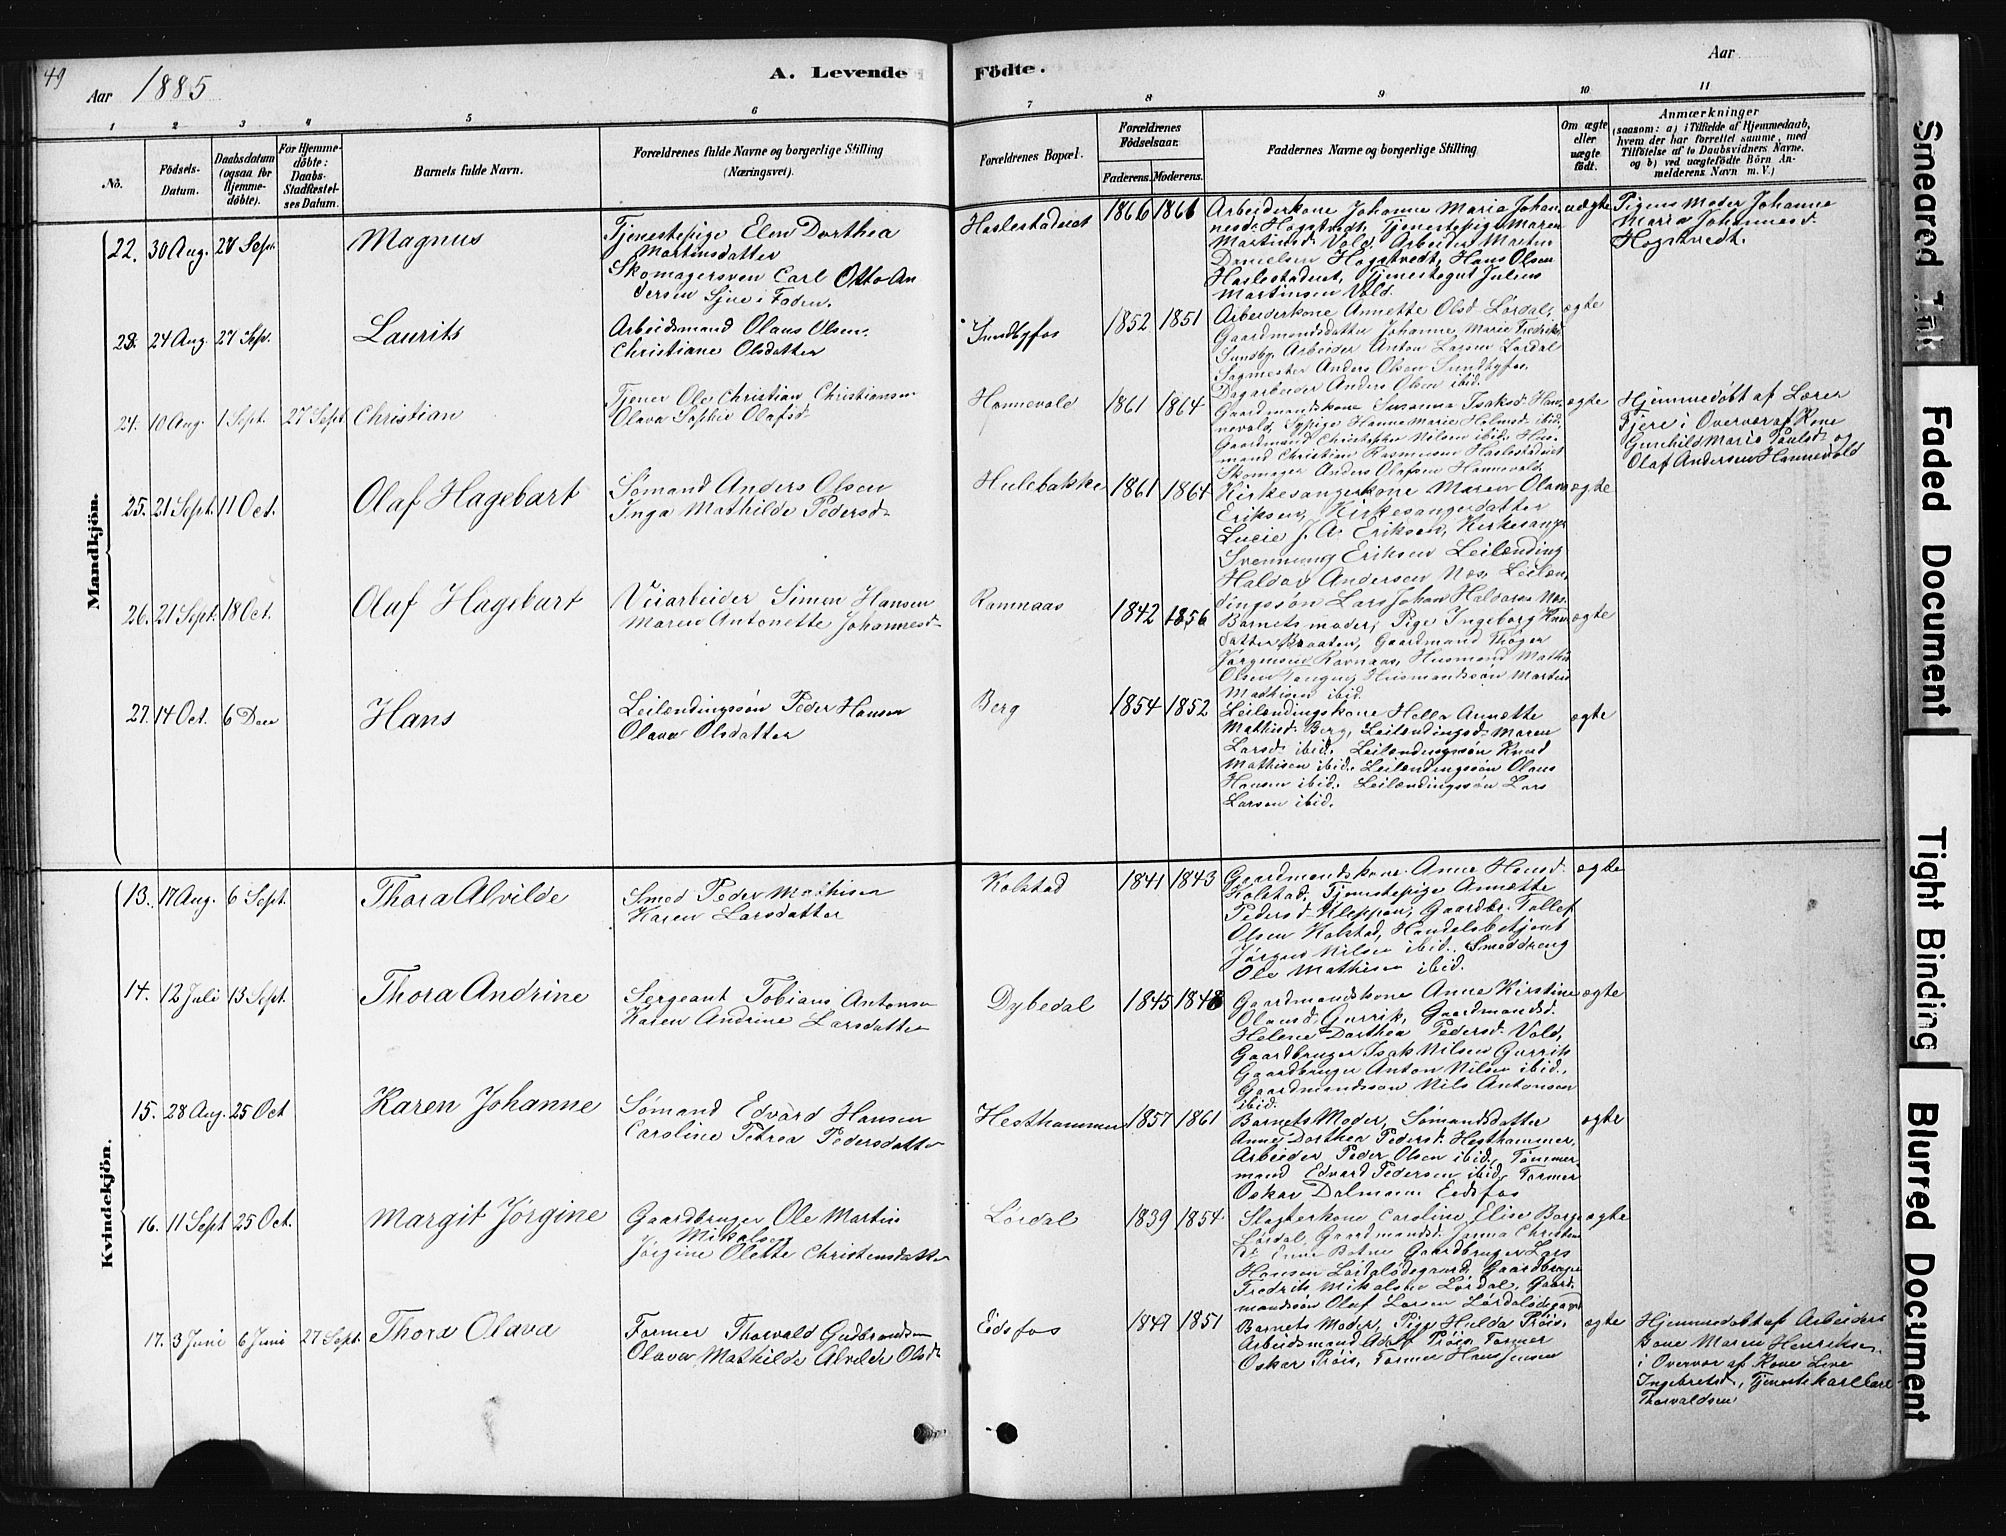 49
Aar 1885
A. Levende Födte.
Aar
1 2 3 4 5 6 7 8 9 10 11
No.
Födsels-Datum.
Daabsdatum (ogsaa for Hjemme-döbte).
For Hjemme-döbte: Daabs-Stadfæstel-ses Datum.
Barnets fulde Navn.
Forældrenes fulde Navne og borgerlige Stilling (Næringsvei).
Forældrenes Bopæl.
Forældrenes Födselsaar.
Faderens. Moderens.
Faddernes Navne og borgerlige Stilling
Om ægte eller uægte födt.
Anmærkninger
(saasom: a) i Tilfælde af Hjemmedaab,
hvem der har forrettet samme, med
Tilföielse af to Daabsvidners Navne,
og b) ved uægtefödte Börn An-
melderens Navn m. V.)
Mandkjön.
22. 30 Aug. 27 Sept. Magnus
Tjenestepige Elen Dorthea
Martinsdatter
Skomagersven Carl Otto An
dersen Fjre i Foden.
Haslestadeiet 1866 1861
Arbeiderkone Johanne Maria Johan
nesd. Hogstvedt, Tjenestepige Maren
Martinsd. Vold. Arbeider Martin
Danielsen Hogstvedt, Hans Olsen
Haslestadeiet, Tjenestegut Julius
Martinsen Vold.
uægte
Pigens Moder Johanne
Maria Johannesd.
Hogstvedt.
23. 24 Aug. 27 Sept. Laurits
Arbeidsmand Olaus Olsen.
Christiane Olsdatter
Sundbyfos 1852 1851
Arbeiderkone Annette Olsd. Lørdal,
Gaardmandsdatter Johanne Marie Fredriks
Sundby. Arbeider Anton Larsen Lørdal
Sagmester Anders Olsen Sundbyfos,
Dagarbeider Anders Olsen ibid.
ægte
24. 10 Aug. 1 Sept. 27 Sept. Christian
Tjener Ole Christian Christiansen
Olava Sophie Olafsd.
Hannevold 1861 1864
Gaardmandskone Susanne Isaksd. Han
nevold, Sypige Hanne Marie Holmsd. ibid.
Gaardmand Christopher Nilsen ibid. Hus
mand Christian Rasmussen Haslestadeiet
Skomager Anders Olafsen Hannevold.
ægte
Hjemmedøbt af Lærer
Fjere i Overvær af Kone
Gunhild Maria Paulsd. og
Olaf Andersen Hannevold
25. 21 Sept. 11 Oct. Olaf Hagebart
Sømand Anders Olsen
Inga Mathilde Pedersd.
Hulebakke 1861 1864
Kirkesangerkone Maren Olava
Eriksen, Kirkesangerdatter
Lucie J. A. Eriksen, Kirkesanger
Svennung Eriksen Leilænding
Haldor Andersen Nes, Leilæn,
dingssøn Lars Johan Halvorsen Nes.
ægte
26. 21 Sept. 18 Oct. Olaf Hagebart
Veiarbeider Simen Hansen
Maren Antonette Johannesd.
Ramnaas 1842 1856
Barnets moder, Pige Ingeborg Knuds
datter Braaten, Gaardmand Thøger
Jørgensen Ravnaas, Husmand Mathis
Olsen Tangen, Husmandssøn Martin
Mathisen ibid.
ægte
27. 14 Oct. 6 Dec Hans
Leilændingssøn Peder Hansen
Olava Olsdatter
Berg 1854 1852
Leilændingskone Helle Annette
Mathisd. Berg, Leilændingsd. Maren
Larsd. ibid. Leilændingssøn Knud
Mathisen ibid. Leilændingssøn Olaus
Hansen ibid. Leilændingssøn Lars
Larsen ibid.
ægte
Kvindekjön.
13. 17 Aug. 6 Sept. Thora Alvilde
Smed Peder Mathisen
Karen Larsdatter
Kolstad 1841 1843
Gaardmandskone Anne Hansd.
Kolstad, Tjenestepige Annette
Pedersd. Kleppen, Gaardbr. Tollef
Olsen Kolstad, Handelsbetjent
Jørgen Nilsen ibid. Smeddreng
Ole Mathisen ibid.
ægte
14. 12 Juli 13 Sept. Thora Andrine
Sergeant Tobias Antonsen
Karen Andrine Larsdatter
Dybedal 1845 1848
Gaardmandskone Anne Kirstine
Olausd. Gurrik, Gaardmandsd.
Helene Dorthea Pedersd. Vold,
Gaardbruger Isak Nilsen Gurrik
Gaardbruger Anton Nilsen ibid.,
Gaardmandssøn Nils Antonsen
ibid.
ægte
15. 28 Aug. 25 Oct Karen Johanne
Sømand Edvard Hansen
Caroline Petrea Pedersdatter
Hesthammer 1857 1861
Barnets Moder, Sømandsdatter
Anne Dorthea Pedersd. Hesthammer,
Arbeider Peder Olsen ibid., Tømmer-
mand Edvard Pedersen ibid. Former
Oskar Dalmann Eidsfos
ægte
16. 11 Sept 25 Oct. Margit Jørgine
Gaardbruger Ole Martin
Mikalsen
Jørgine Olette Christensdatter
Lørdal 1839 1854
Slagterkone Caroline Elise Borge
Lørdal, Gaardmandsd. Janna Christen
d. Enne Botne Gaardbruger Lars
Hansen Lørdalødegaard, Gaardbruger
Fredrik Mikalsen Lørdal, Gaard,
mandssøn Olaf Larsen Lørdalødegaard
ægte
17. 3 Juni 6 Juni 27 Sept. Thora Olava
Former Thorvald Gudbrandsen
Olava Mathilde Alvilde Olsd.
Eidsfos 1847 1851
Barnets Moder, Pige Hilda Prøis,
Arbeidsmand Adolf Prøis Former
Oskar Prøis, Former Hans Jensen
ægte
Hjemmedøbt af Arbeider
Kone Maren Henriksen
i Overvær af Kone Live
Ingebretsd., Tjenestekarl Carl
Thorvaldsen
Smeared Ink
Faded Document
Tight Binding
Blurred Document